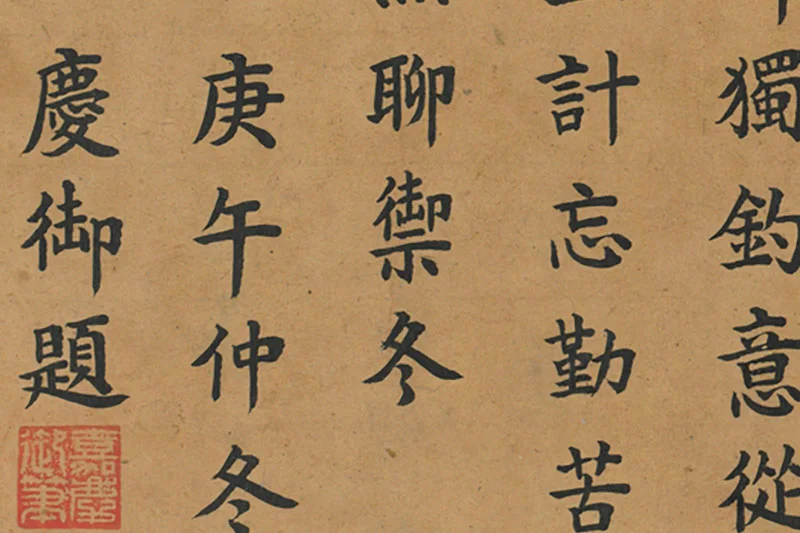 獨釣意從
計忘勤苦
聊禦冬
庚午仲冬
慶御題
嘉慶御筆